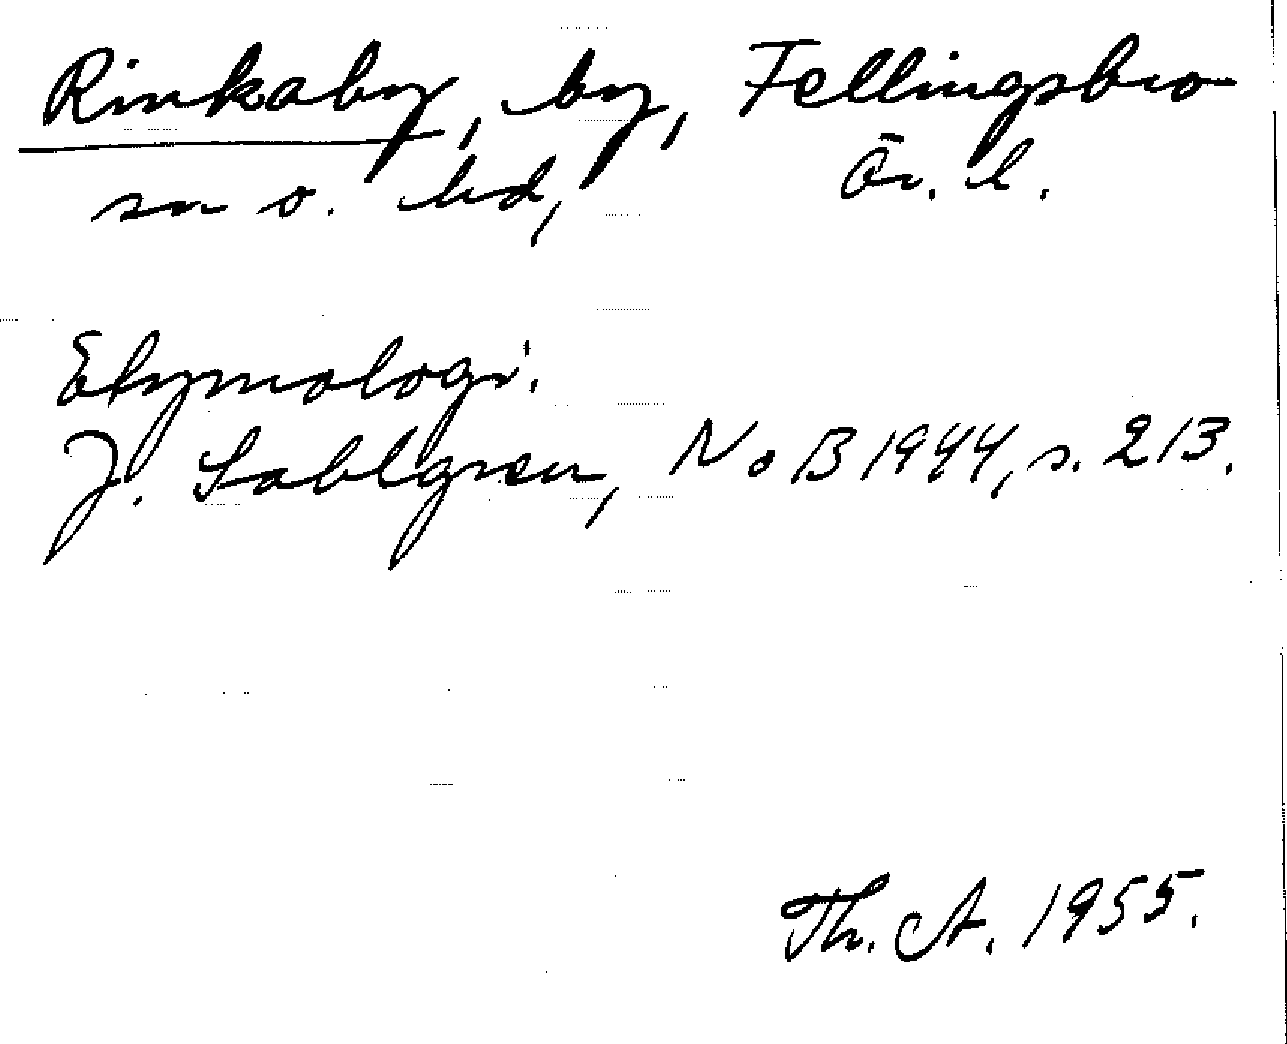 Rinkaby, by, Fellingsbro
sn o. hd, Ör. l.
Etymologi.
J. Sahlgren, NoB 1944, s. 213.
Th. A. 1955.